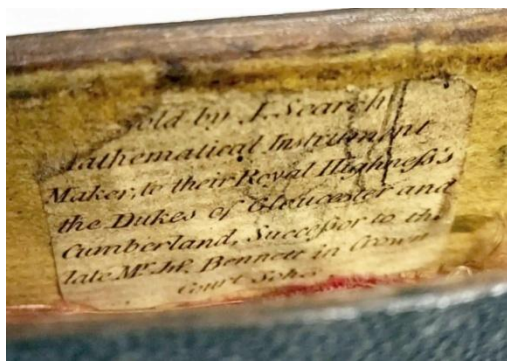 Sold by J. Search
Mathematical Instrument
Maker, to their Royal Highneſs's
the Dukes of Gloucester and
Cumberland, Succeſsor to the
late Mr. Bennett in Crown
Court Soho